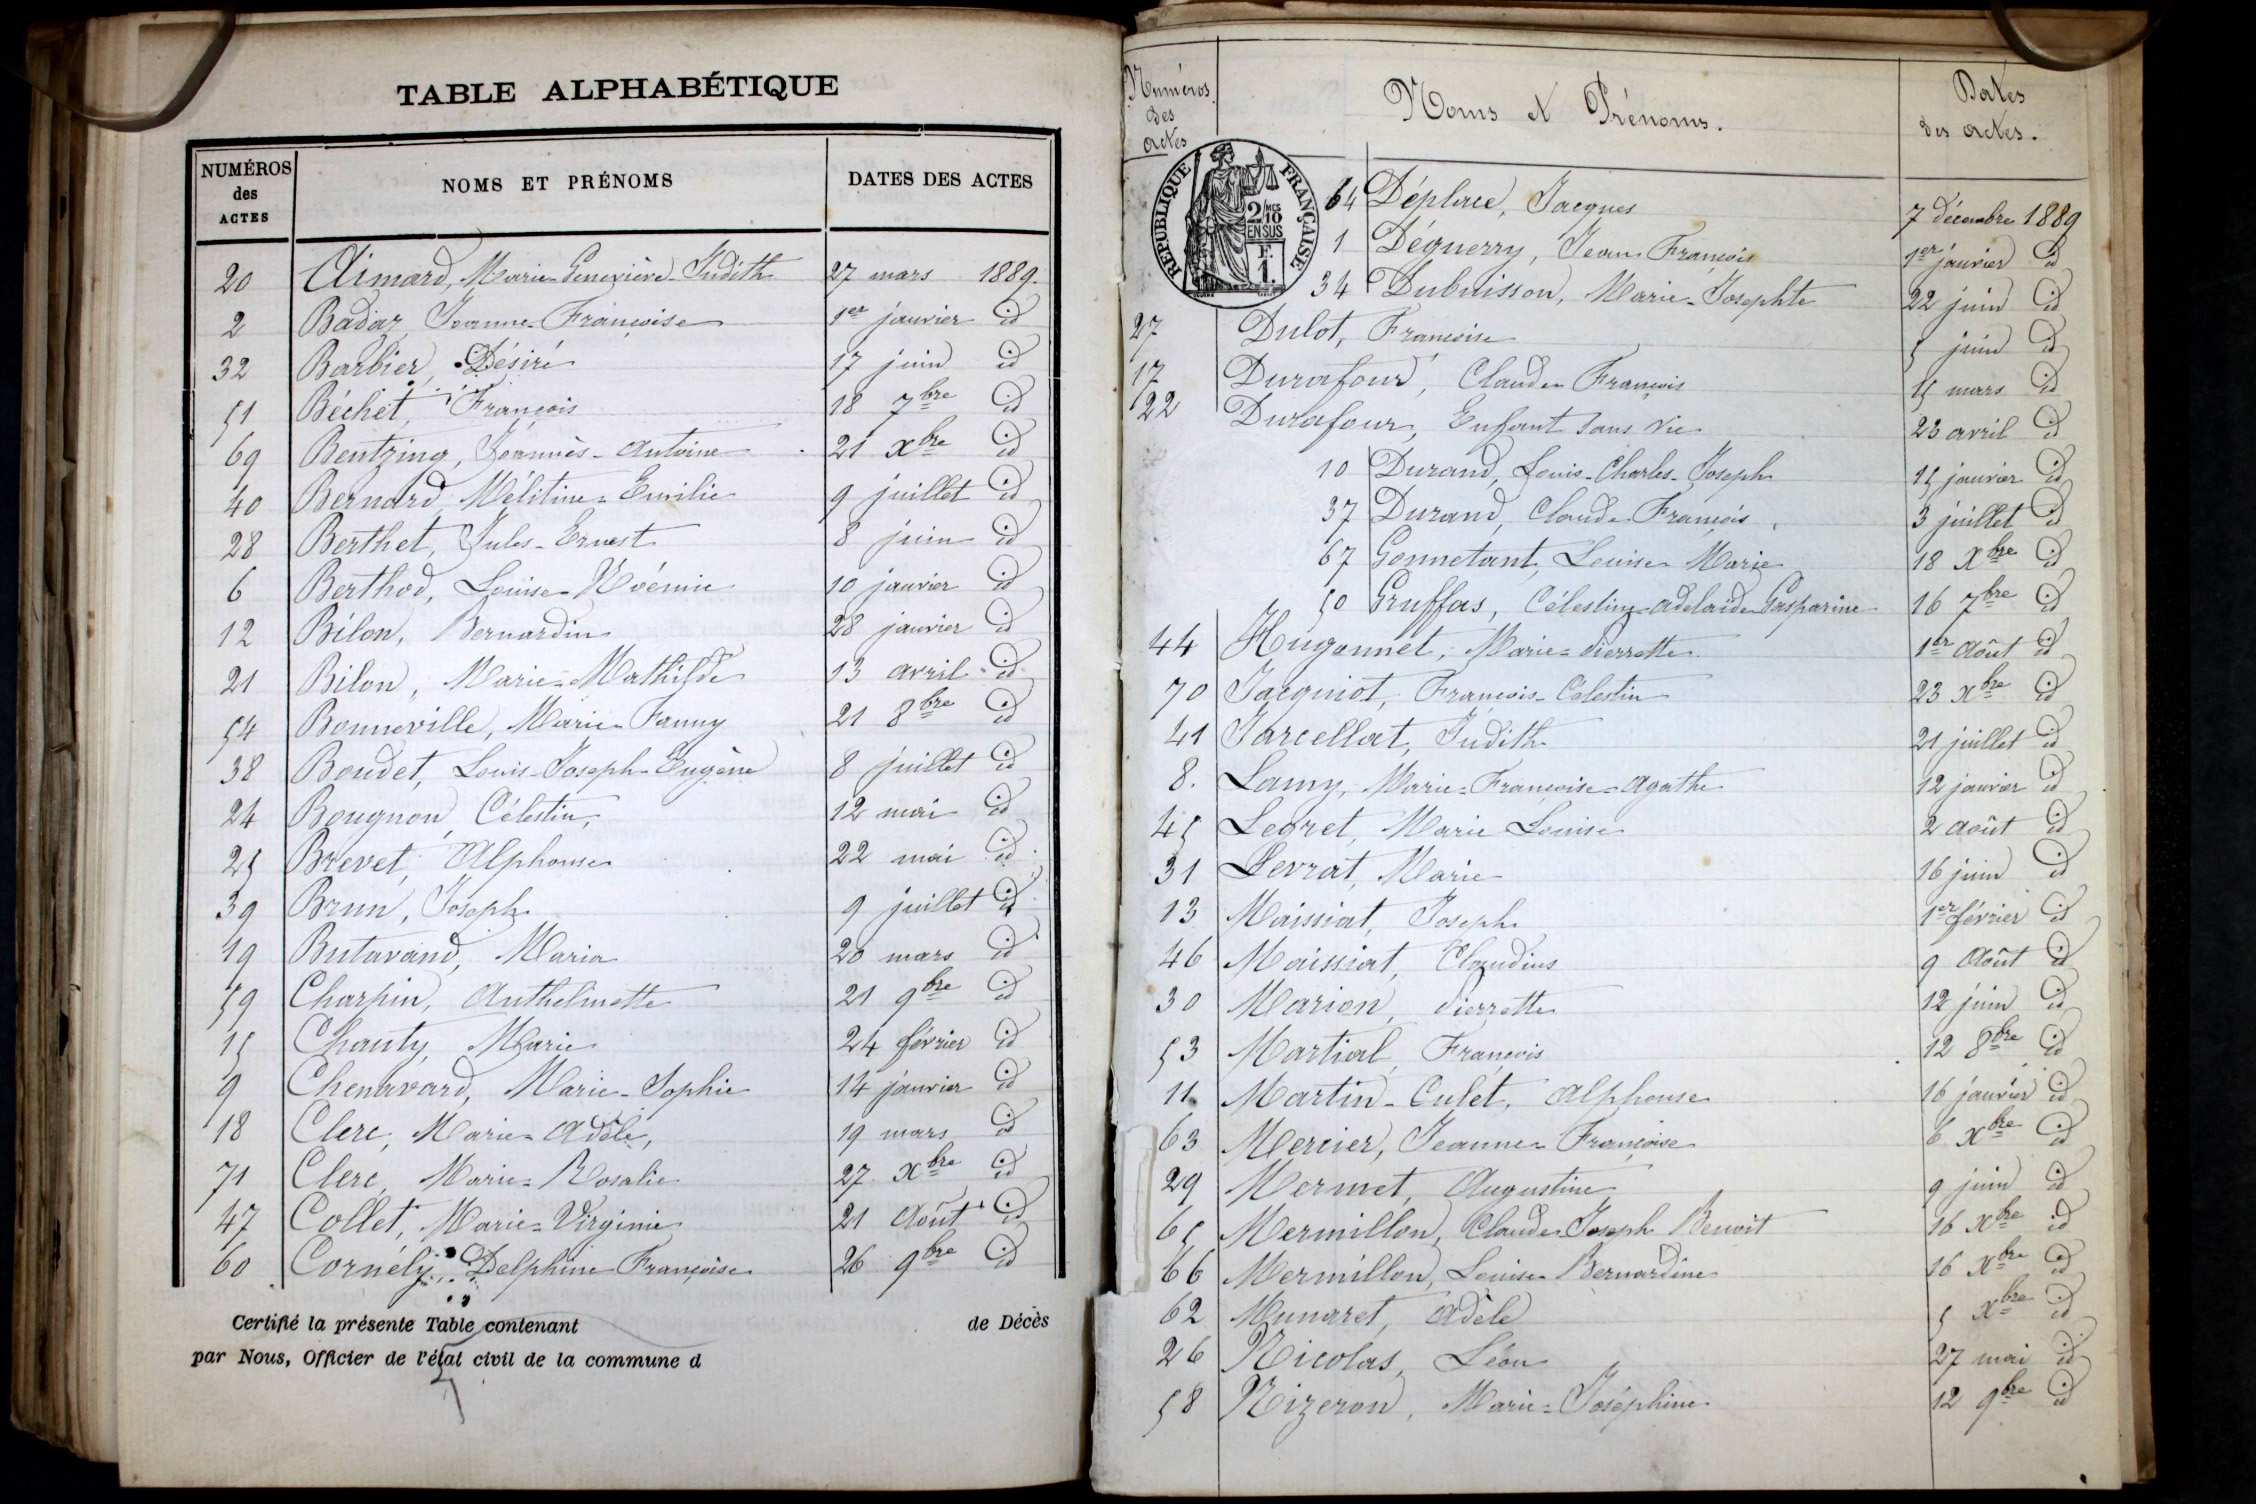 TABLE ALPHABÉTIQUE
NUMÉROS des ACTES NOMS ET PRÉNOMS DATES DES ACTES
20 Aimard, Marie-Geneviève-Judith 27 mars 1889.
2 Badaz, Jeanne-Françoise 1er janvier id
32 Barbier, Désiré 17 juin id
51 Béchet, François 18 7bre id
69 Bentzing, Joannès-Antoine 21 Xbre id
40 Bernard, Mélitine-Emilie 9 juillet id
28 Berthet, Jules-Ernest 8 juin id
6 Berthod, Louise-Noémie 10 janvier id
12 Bilon, Bernardin 28 janvier id
21 Bilon, Marie-Mathilde 13 avril id
54 Bonneville, Marie-Fanny 21 8bre id
38 Boudet, Louis-Joseph-Eugène 8 juillet id
24 Bougnon, Célestin, 12 mai id
25 Brevet, Alphonse 22 mai id
39 Brun, Joseph 9 juillet id
19 Butavand, Maria 20 mars id
59 Charpin, Anthelmette 21 9bre id
15 Chanty, Marie 24 février id
9 Chenavard, Marie-Sophie 14 janvier id
18 Clerc, Marie-Adèle, 19 mars id
71 Clerc, Marie-Rosalie 27 Xbre id
47 Collet, Marie-Virginie 21 Août id
60 Cornély, Delphine Françoise 26 9bre id
Certifié la présente Table contenant de Décès
par Nous, Officier de l'état civil de la commune d
Numéros des actes Noms et Prénoms. Dates des actes.
RÉPUBLIQUE FRANÇAISE
2/10 MES
EN SUS
F.
1.
64 Déplace, Jacques 7 décembre 1889
1 Déguerry, Jean François 1er janvier id
34 Dubuisson, Marie-Josephte 22 juin id
27 Dulot, Françoise 5 juin id
17 Durafour, Claude François 15 mars id
22 Durafour, Enfant sans vie 23 avril id
10 Durand, Louis-Charles-Joseph 15 janvier id
37 Durand, Claude François 3 juillet id
67 Gonnetant, Louise Marie 18 Xbre id
50 Gruffas, Célestine-Adelaïde Gasparine 16 7bre id
44 Hugonnet, Marie-Pierrette 1er Août id
70 Jacquiot, François-Célestin 23 Xbre id
41 Jarcellat, Judith 21 juillet id
8. Lamy, Marie-Françoise-Agathe 12 janvier id
45 Legret, Marie Louise 2 août id
31 Levrat, Marie 16 juin id
13 Maissiat, Joseph 1er février id
46 Maissiat, Claudius 9 Août id
30 Marion, Pierrette 12 juin id
53 Martial, François 12 8bre id
11 Martin-Culet, Alphonse 16 janvier id
63 Mercier, Jeanne-Françoise 6 Xbre id
29 Mermet, Augustine 9 juin id
65 Mermillon, Claude Joseph Benoit 16 Xbre id
66 Mermillon, Louise Bernardine 16 Xbre id
62 Munaret, Adèle 5 Xbre id
26 Nicolas, Léon 27 mai id
58 Nizeron, Marie-Joséphine 12 9bre id